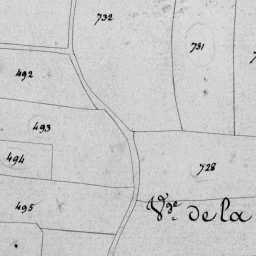 732
731
492
493
494
728
495
Vge de la